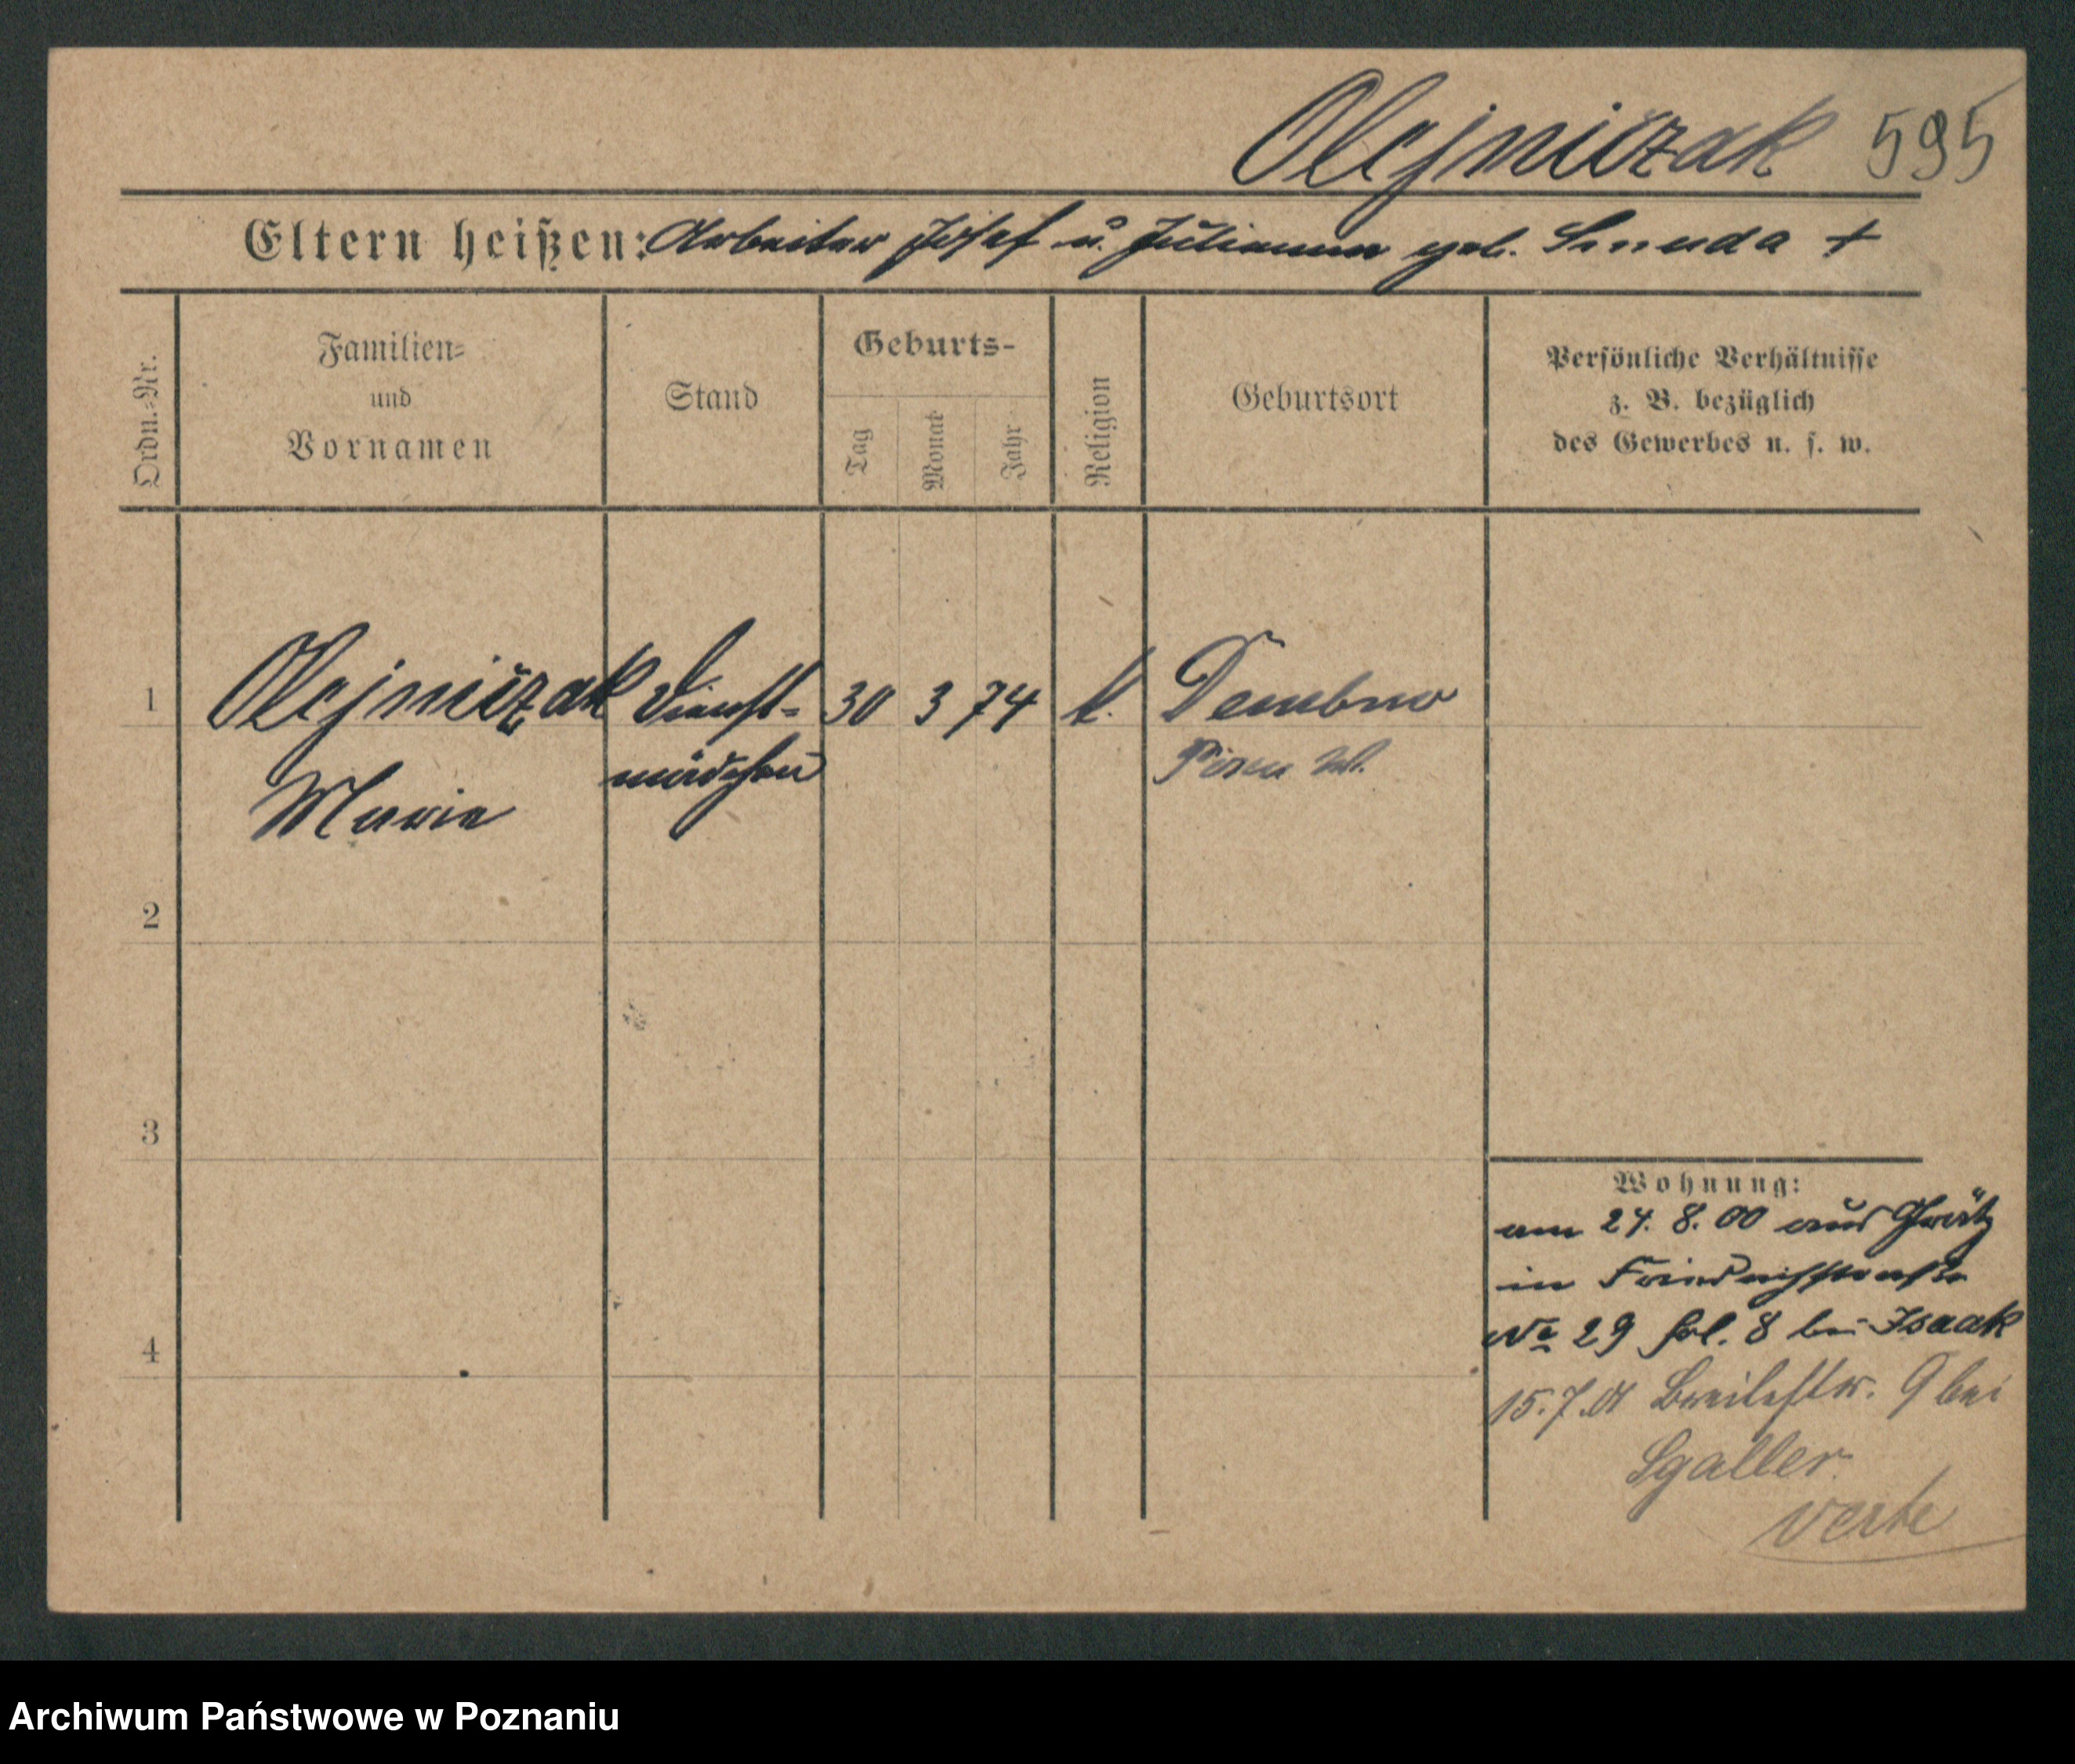 Olejniczak 595
Eltern heißen: Arbeiter Josef u. Julianna geb. Smuda +
Ordn.-Nr.
Familien-
und
Vornamen
Stand
Geburts-
Tag
Monat
Jahr
Religion
Geburtsort
Persönliche Verhältnisse
z. B. bezüglich
des Gewerbes u. s. w.
1 Olejniczak Dienst- 30 3 74 k. Dembno
Marie mädchen
2
3
4
Wohnung:
am 24. 8. 00 aus Grätz
in Friedrichstraße
No 29 bei Isaak
15.7.01 Breitestr. 9 bei
Sgaller
verte
Archiwum Państwowe w Poznaniu